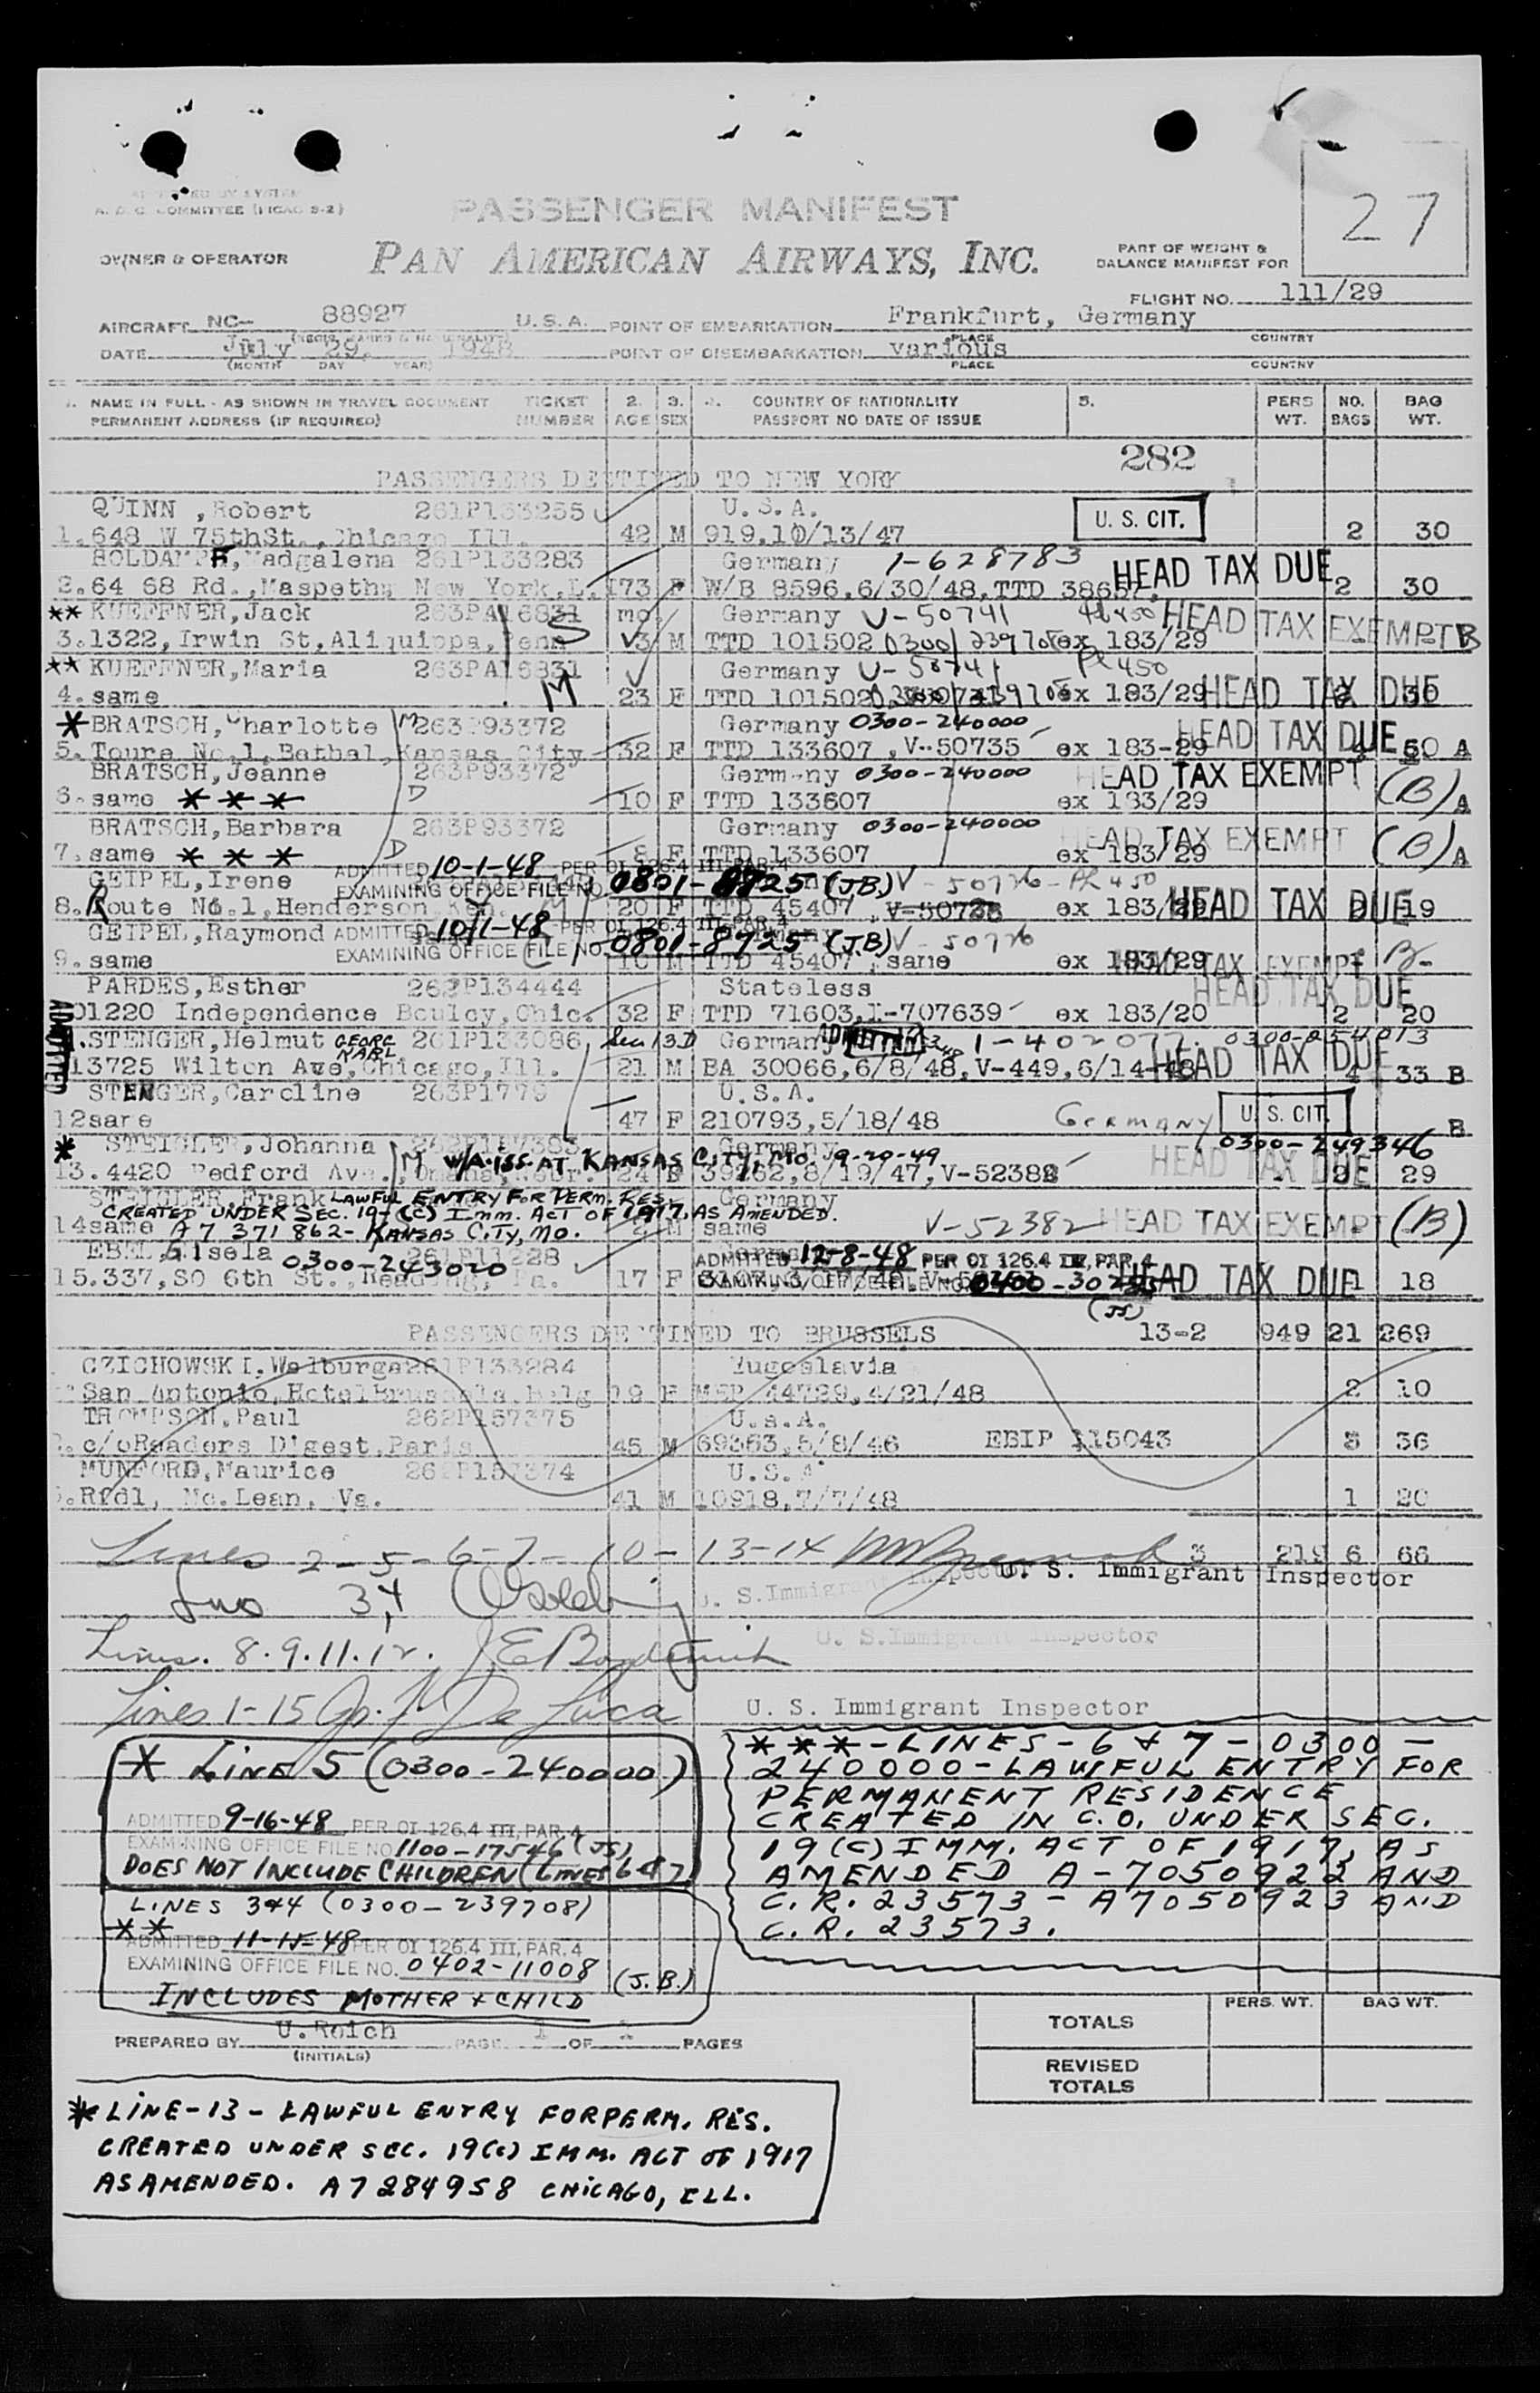 27
A. D. C. COMMITTEE
PASSENGER MANIFEST
OWNER & OPERATOR
PAN AMERICAN AIRWAYS, INC.
PART OF WEIGHT &
BALANCE MANIFEST FOR
FLIGHT NO. 111/29
AIRCRAFT NC- 88927 U.S.A. POINT OF EMBARKATION Frankfurt, Germany
PLACE COUNTRY
DATE July 29, 1948 POINT OF DISEMBARKATION various
(MONTH DAY YEAR) PLACE COUNTRY
1. NAME IN FULL - AS SHOWN IN TRAVEL DOCUMENT TICKET 2. 3. 4. COUNTRY OF NATIONALITY 5. PERS NO. BAG
PERMANENT ADDRESS (IF REQUIRED) NUMBER AGE SEX PASSPORT NO DATE OF ISSUE WT. BAGS WT.
282
PASSENGERS DESTINED TO NEW YORK
QUINN ,Robert 261P133255 U.S.A. U. S. CIT.
1.648 W 75thSt.,Chicago Ill. 42 M 919,10/13/47 2 30
Madgalena 261P133283 Germany 1-628783 HEAD TAX DUE
2.64 68 Rd.,Maspeth, New York,L.I 73 F W/B 8596,6/30/48,TTD 2 30
** KUEFFNER,Jack 263PA16831 mo. Germany V-50741 HEAD TAX EXEMPT B
3.1322,Irwin St,Aliquippa,Penn S 3 M TTD 101502 0300/239708 ex 183/29
** KUEFFNER,Maria 263PA16831 Germany V-50741 Pl 450
4.same M 23 F TTD 101502 ex 183/29 HEAD TAX DUE 2 30
* BRATSCH,Charlotte M 263P93372 Germany 0300-240000 HEAD TAX DUE
5. Toure No.1,Bethel,Kansas City 32 F TTD 133607 ,V-50735 ex 183-29 50 A
BRATSCH,Jeanne 263P93372 Germany 0300-240000 HEAD TAX EXEMPT (B)
6.same *** D 10 F TTD 133607 ex 183/29 A
BRATSCH,Barbara 263P93372 Germany 0300-240000 HEAD TAX EXEMPT (B)
7.same *** D 8 F TTD 133607 ex 183/29 A
ADMITTED 10-1-48 PER OI 126.4 III, PAR. 4
GEIPEL,Irene EXAMINING OFFICE FILE NO. 0801-8725 (JB) V-50726-Pl 450
8.Route No.1,Henderson Ken. M 20 F TTD 45407 ex 183/29 HEAD TAX DUE 19
GEIPEL,Raymond ADMITTED 10/1-48 PER OI 126.4 III, PAR. 4
EXAMINING OFFICE FILE NO. 0801-8725 (JB) V-50726
9.same M TTD 45407 ,same ex 183/29 HEAD TAX EXEMPT B
PARDES,Esther 262P134444 Stateless HEAD TAX DUE
1220 Independence Boulcy,Chic. 32 F TTD 71603,I-707639 ex 183/20 2 20
ADMITTED
STENGER,Helmut GEORG KARL 261P133086 Germany 1-402077 0300-254013
13725 Wilton Ave,Chicago,Ill. 21 M BA 30066,6/8/48,V-449,6/14-48 HEAD TAX DUE 4 33 B
STENGER,Caroline 263P1779 U.S.A.
12same 47 F 210793,5/18/48 GERMANY U. S. CIT. B
* STEIGLER,Johanna Germany 0300-249346
M W/A. ISS. AT KANSAS CITY, MO. 9-20-49
13.4420 Bedford Ave. 24 F 39262,8/19/47,V-52382 HEAD TAX DUE 2 29
STEIGLER,Frank LAWFUL ENTRY FOR PERM. RES. Germany
CREATED UNDER SEC. 19-(C) IMM. ACT OF 1917, AS AMENDED.
14same A 7 371 862- KANSAS CITY, MO. 2 M same V-52382 HEAD TAX EXEMPT (B)
EBEL,Gisela 0300-243020 ADMITTED 12-8-48 PER OI 126.4 III, PAR. 4
15.337,SO 6th St.,Reading, Pa. 17 F EXAMINING OFFICE FILE NO. HEAD TAX DUE 1 18
(JS)
PASSENGERS DESTINED TO BRUSSELS 13-2 949 21 269
CZICHOWSKI,Walburga 261P133284 Yugoslavia
San Antonio,Hotel Brussels,Belg 19 F MEP 44729,4/21/48 2 10
THOMPSON,Paul 262P157375 U.s.A.
2.c/oReaders Digest,Paris 45 M 69363,5/8/46 EBIP 115043 3 36
MUNFORD,Maurice 262P157374 U.S.A
Rfd1, Mc.Lean, Va. 41 M 10918,7/7/48 1 20
Lines 2-5-6-7-10-13-14 3 219 6 66
U. S. Immigrant Inspector
Lines 3,4
U. S.Immigrant Inspector
Lines. 8.9.11.12.
U. S.Immigrant Inspector
Lines 1-15 De Luca U. S. Immigrant Inspector
* LINE 5 (0300-240000)
ADMITTED 9-16-48 PER OI 126.4 III, PAR. 4
EXAMINING OFFICE FILE NO. 1100-17546 (JS)
DOES NOT INCLUDE CHILDREN (LINES 6 & 7)
LINES 3&4 (0300-239708)
**
ADMITTED 11-15-48 PER OI 126.4 III, PAR. 4
EXAMINING OFFICE FILE NO. 0402-11008 (J.B.)
INCLUDES MOTHER & CHILD
***-LINES-6 & 7-0300-
240000-LAWFUL ENTRY FOR
PERMANENT RESIDENCE
CREATED IN C.O. UNDER SEC.
19(C) IMM. ACT OF 1917, AS
AMENDED A-7050922 AND
C.R. 23573-A7050923 AND
C.R. 23573.
PREPARED BY U.Roich PAGE 1 OF 1 PAGES
(INITIALS)
PERS. WT. BAG WT.
TOTALS
REVISED
TOTALS
*LINE-13-LAWFUL ENTRY FOR PERM. RES.
CREATED UNDER SEC. 19(c) IMM. ACT OF 1917
AS AMENDED. A7 284958 CHICAGO, ILL.